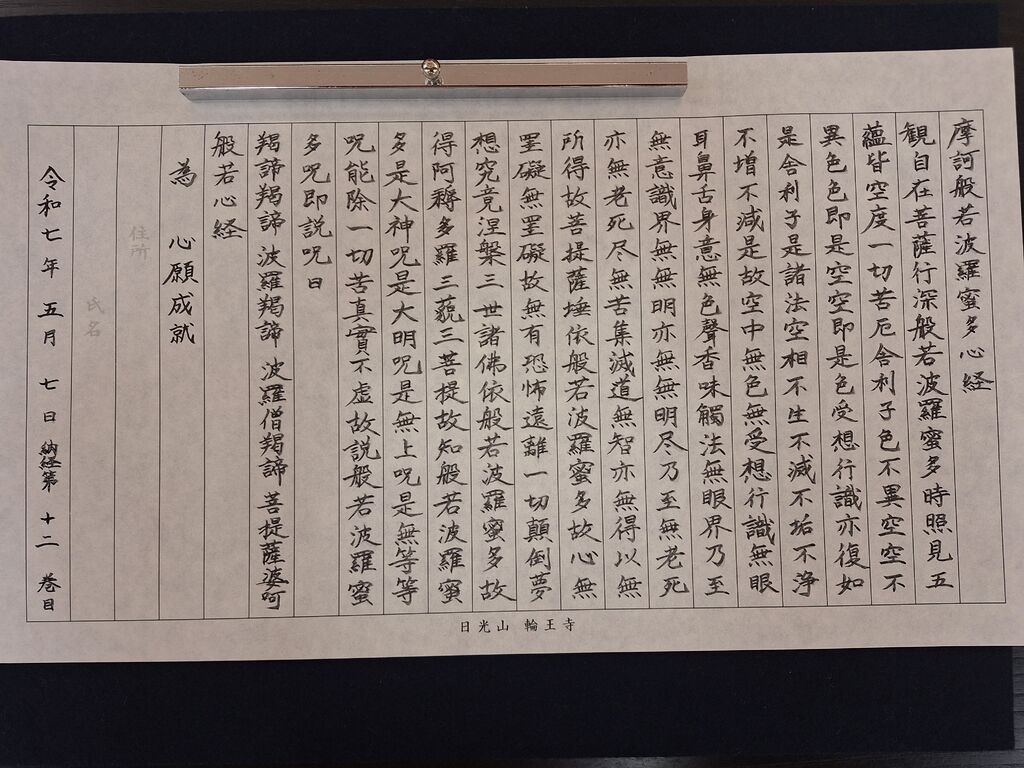 摩訶般若波羅蜜多心経
観自在菩薩行深般若波羅蜜多時照見五
蘊皆空度一切苦厄舎利子色不異空空不
異色色即是空空即是色受想行識亦復如
是舎利子是諸法空相不生不滅不垢不浄
不増不減是故空中無色無受想行識無眼
耳鼻舌身意無色聲香味觸法無眼界乃至
無意識界無無明亦無無明尽乃至無老死
亦無老死尽無苦集滅道無智亦無得以無
所得故菩提薩埵依般若波羅蜜多故心無
罣礙無罣礙故無有恐怖遠離一切顛倒夢
想究竟涅槃三世諸佛依般若波羅蜜多故
得阿耨多羅三藐三菩提故知般若波羅蜜
多是大神呪是大明呪是無上呪是無等等
呪能除一切苦真實不虚故説般若波羅蜜
多呪即説呪曰
羯諦羯諦 波羅羯諦 波羅僧羯諦 菩提薩婆呵
般若心経
為 心願成就
住所
氏名
令和七年 五月 七日 納経第 十二 巻目
日光山 輪王寺